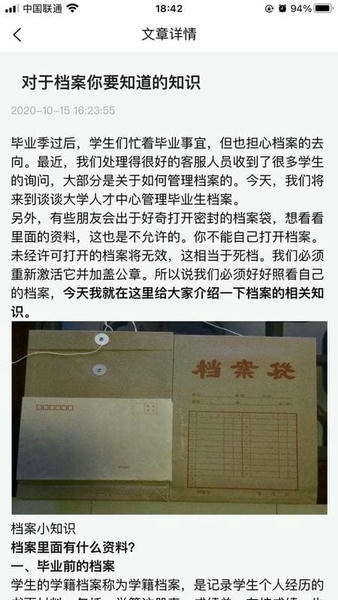 中国联通
18:42
94%
文章详情
对于档案你要知道的知识
2020-10-15 16:23:55
毕业季过后，学生们忙着毕业事宜，但也担心档案的去
向。最近，我们处理得很好的客服人员收到了很多学生
的询问，大部分是关于如何管理档案的。今天，我们将
来到谈谈大学人才中心管理毕业生档案。
另外，有些朋友会出于好奇打开密封的档案袋，想看看
里面的资料，这也是不允许的。你不能自己打开档案。
未经许可打开的档案将无效，这相当于死档。我们必须
重新激活它并加盖公章。所以说我们必须好好照看自己
的档案，今天我就在这里给大家介绍一下档案的相关知
识。
档案袋
档案小知识
档案里面有什么资料?
一、毕业前的档案
学生的学籍档案称为学籍档案，是记录学生个人经历的